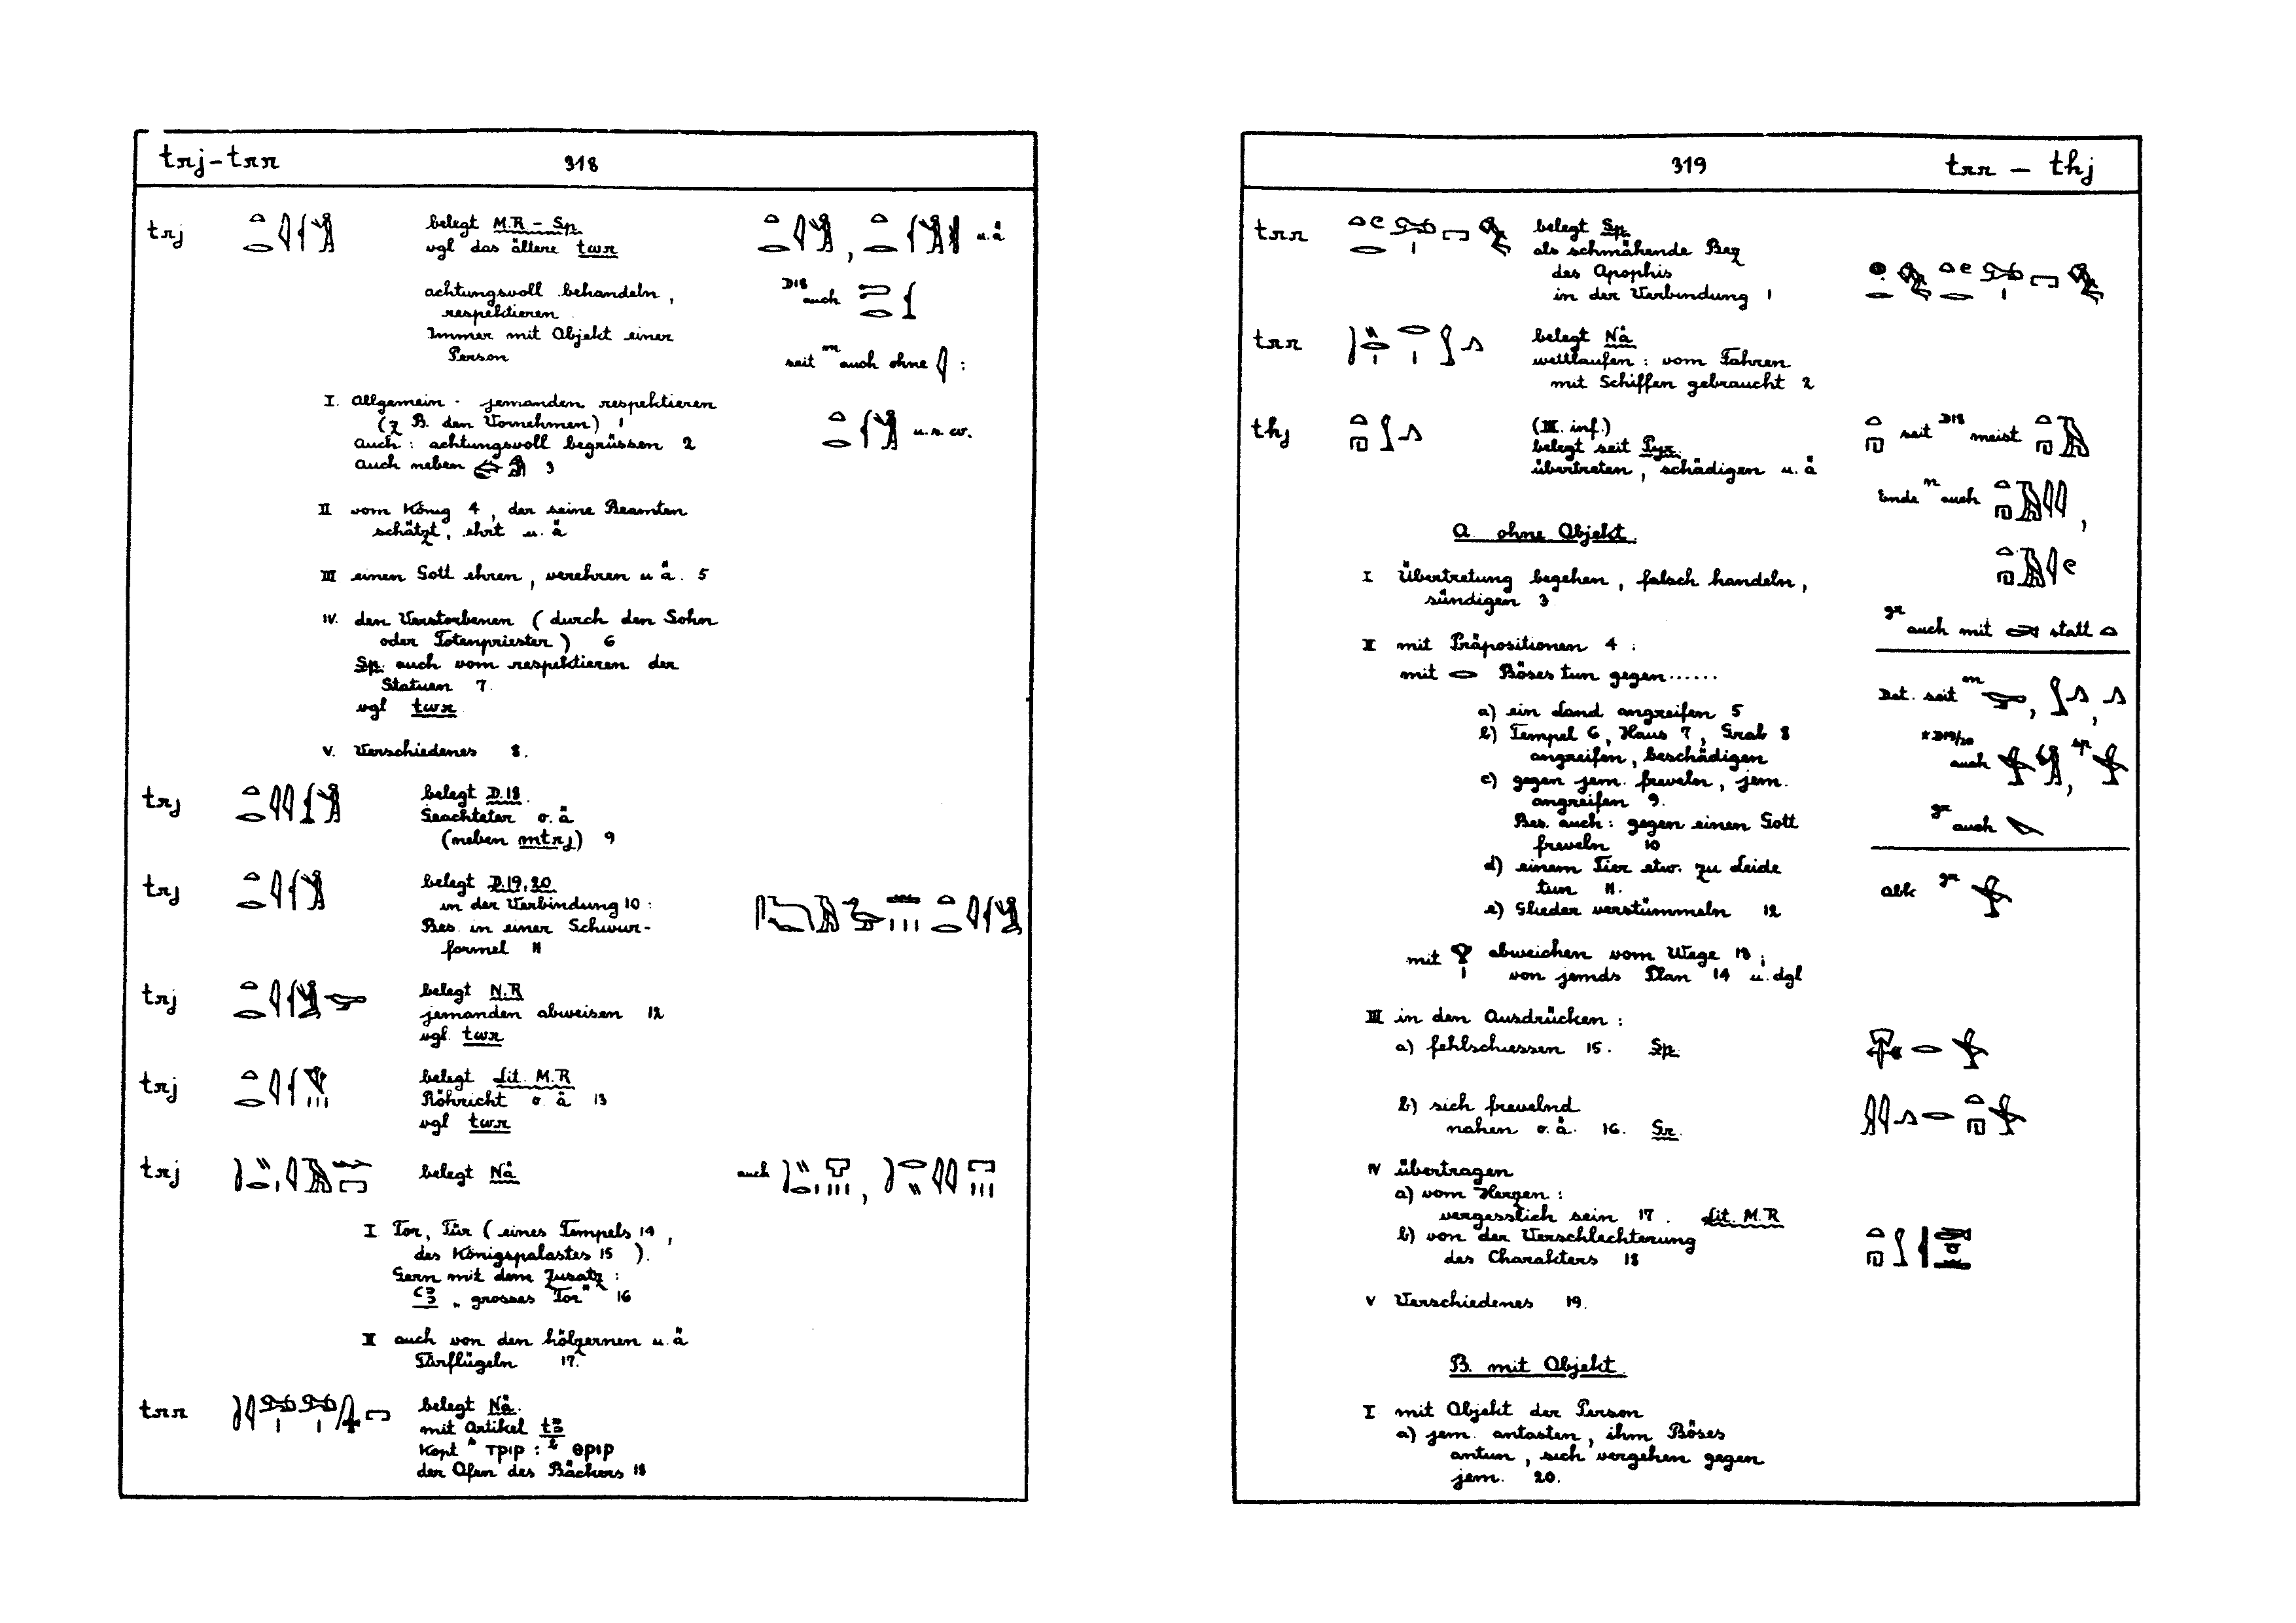 trj-trr 318
trj belegt M.R - Sp.
vgl das ältere twr u.ä
achtungsvoll behandeln, D18 auch
respektieren
Immer mit Objekt einer
Person seit m auch ohne :
I. Allgemein · jemanden respektieren
(z B. den Vornehmen) 1
auch: achtungsvoll begrüssen 2 u.s.w.
auch neben 3
II vom König 4, der seine Beamten
schätzt, ehrt u.ä
III einen Gott ehren, verehren u ä. 5
IV. den Verstorbenen (durch den Sohn
oder Totenpriester) 6
Sp. auch vom respektieren der
Statuen 7.
vgl twr
V. Verschiedenes 8.
trj belegt D.18.
Geachteter o.ä
(neben mtrj) 9
trj belegt D.19.20
in der Verbindung 10:
Bes. in einer Schwur-
formel 11
trj belegt N.R
jemanden abweisen 12
vgl. twr
trj belegt Lit. M.R
Röhricht o. ä 13
vgl twr
trj belegt Nä auch ,
I Tor, Tür (eines Tempels 14,
des Königspalastes 15 ).
Gern mit dem Zusatz:
ꜥꜣ „grosses Tor" 16
II auch von den hölzernen u.ä
Türflügeln 17.
trr belegt Nä.
mit Artikel tꜣ
Kopt s ⲧⲣⲓⲣ : b ⲑⲣⲓⲣ
der Ofen des Bäckers 18
319 trr - thj
trr belegt Sp.
als schmähende Bez
des Apophis
in der Verbindung 1
trr belegt Nä
wettlaufen: vom Fahren
mit Schiffen gebraucht 2
thj (III. inf.) seit D18 meist
belegt seit Pyr.
übertreten, schädigen u.ä
Ende n auch ,
A ohne Objekt.
I Übertretung begehen, falsch handeln,
sündigen 3
gr auch mit statt
II mit Präpositionen 4 :
mit Böses tun gegen......
Det. seit m , ,
a) ein Land angreifen 5
b) Tempel 6, Haus 7, Grab 8
angreifen, beschädigen
* D19/20 auch , sp
c) gegen jem. freveln, jem.
angreifen 9.
Bes. auch: gegen einen Gott
freveln 10
gr auch
d) einem Tier etw. zu Leide
tun 11.
e) Glieder verstümmeln 12
Abk gr
mit abweichen vom Wege 13;
von jemds Plan 14 u.dgl
III in den Ausdrücken :
a) fehlschiessen 15. Sp.
b) sich frevelnd
nahen o.ä. 16. Gr.
IV übertragen
a) vom Herzen :
vergesslich sein 17. Lit. M.R
b) von der Verschlechterung
des Charakters 18
V Verschiedenes 19.
B. mit Objekt.
I mit Objekt der Person
a) jem. antasten, ihm Böses
antun, sich vergehen gegen
jem. 20.